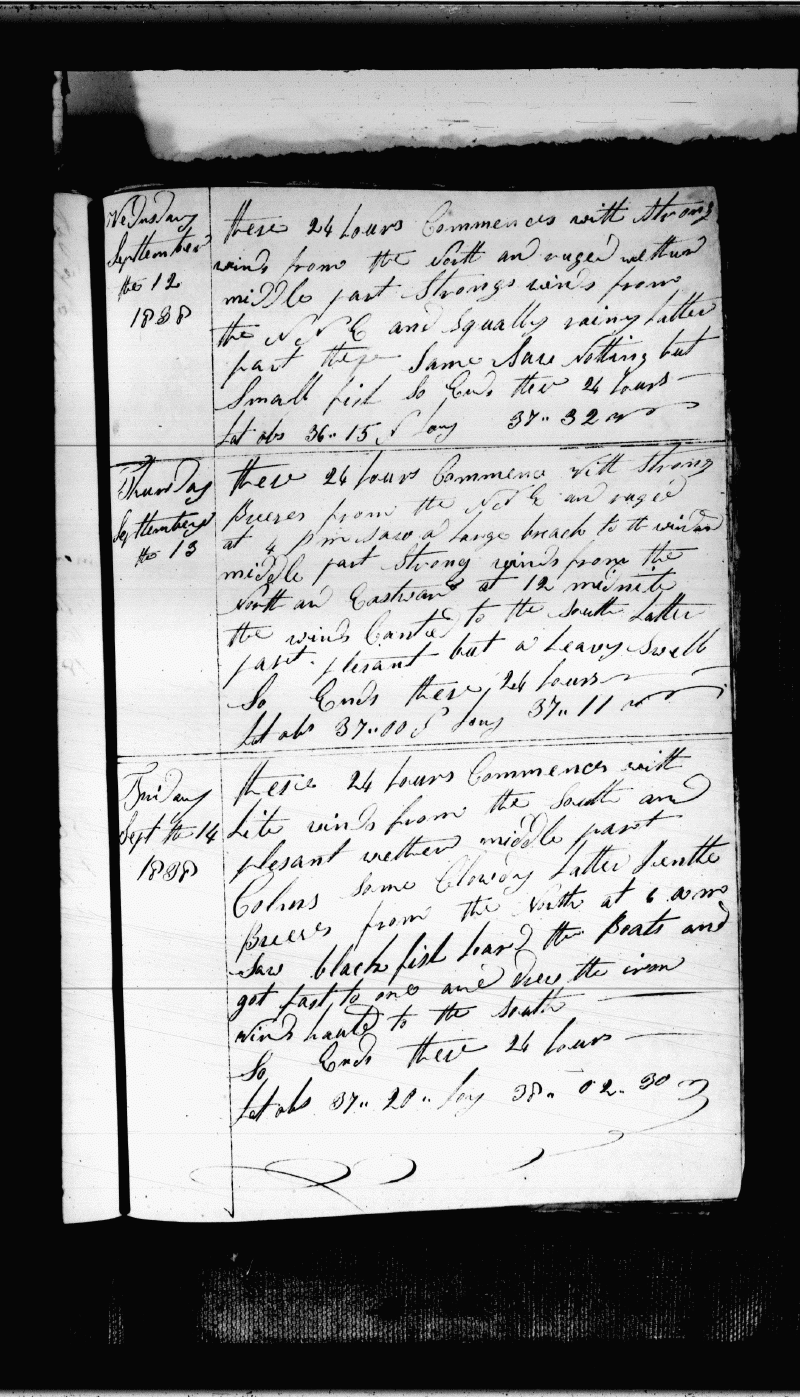 Wednsday
September
the 12
1838
these 24 hours Commences with Strong
winds from the North and ruged wethur
middle part Strongs winds from
the N N E and Squally rainy latter
part these Same Saw Nothing but
Small fish So Ends thes 24 hours
Lat obs 36" 15 N Long 37" 32 W
Thursday
Septtember
the 13
these 24 hours Commence with Strong
Breeses from the N N E and ruged
at 4 P m saw a large breach to the windard
middle part Strong winds from the
North and Eastward at 12 midnite
the winds Canted to the South Latter
part plesant but a heavy Swell
So Ends these 24 hours
Lat obs 37" 00 N Long 37" 11 W
Friday
Sept the 14
1838
these 24 hours Commences with
Lite winds from the South and
plesant wether middle part
Calms some Clowdy Latter Jentle
Breeses from the North at 6 a m
Saw black fish Loard the Boats and
got fast to one and drew the iron
winds hauled to the South
So Ends these 24 hours
Lat obs 37" 20" Long 38" 02" 30